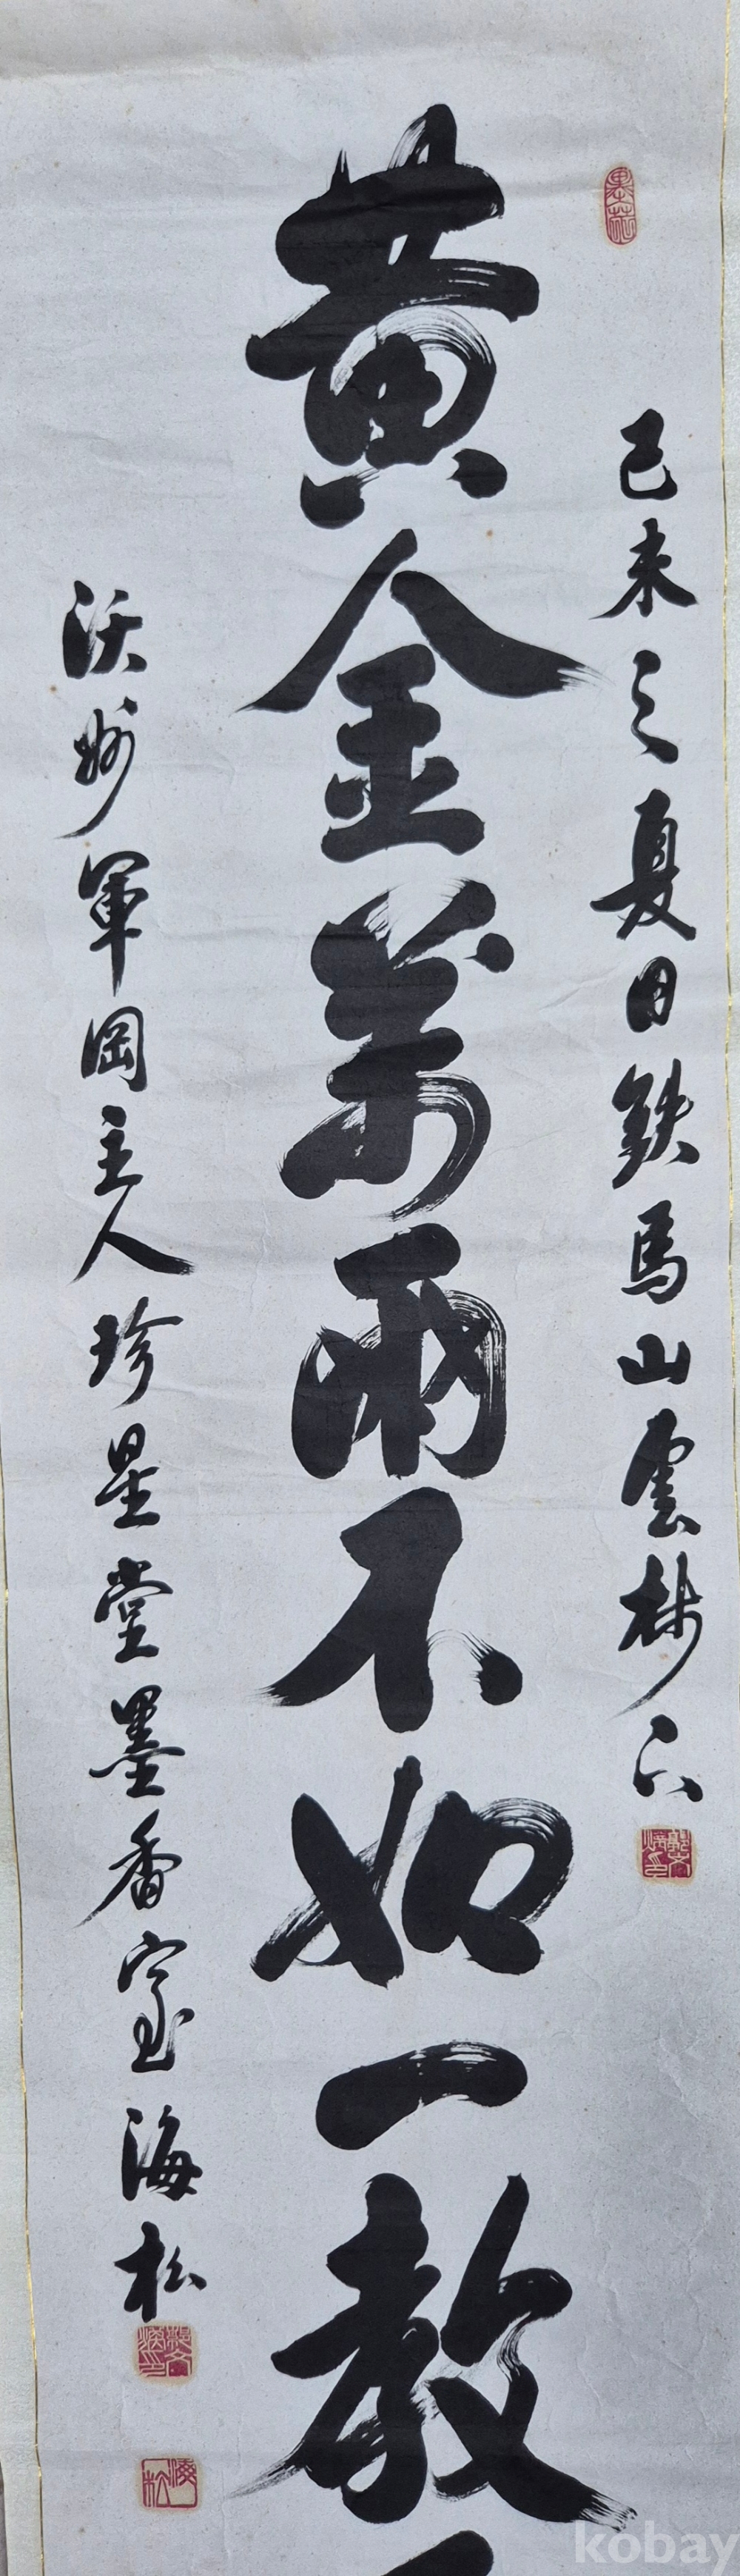 己未之夏日鉄馬山雲林下
黃金萬兩不如一教
沃州軍岡主人珍星堂墨香室海松
海松
kobay